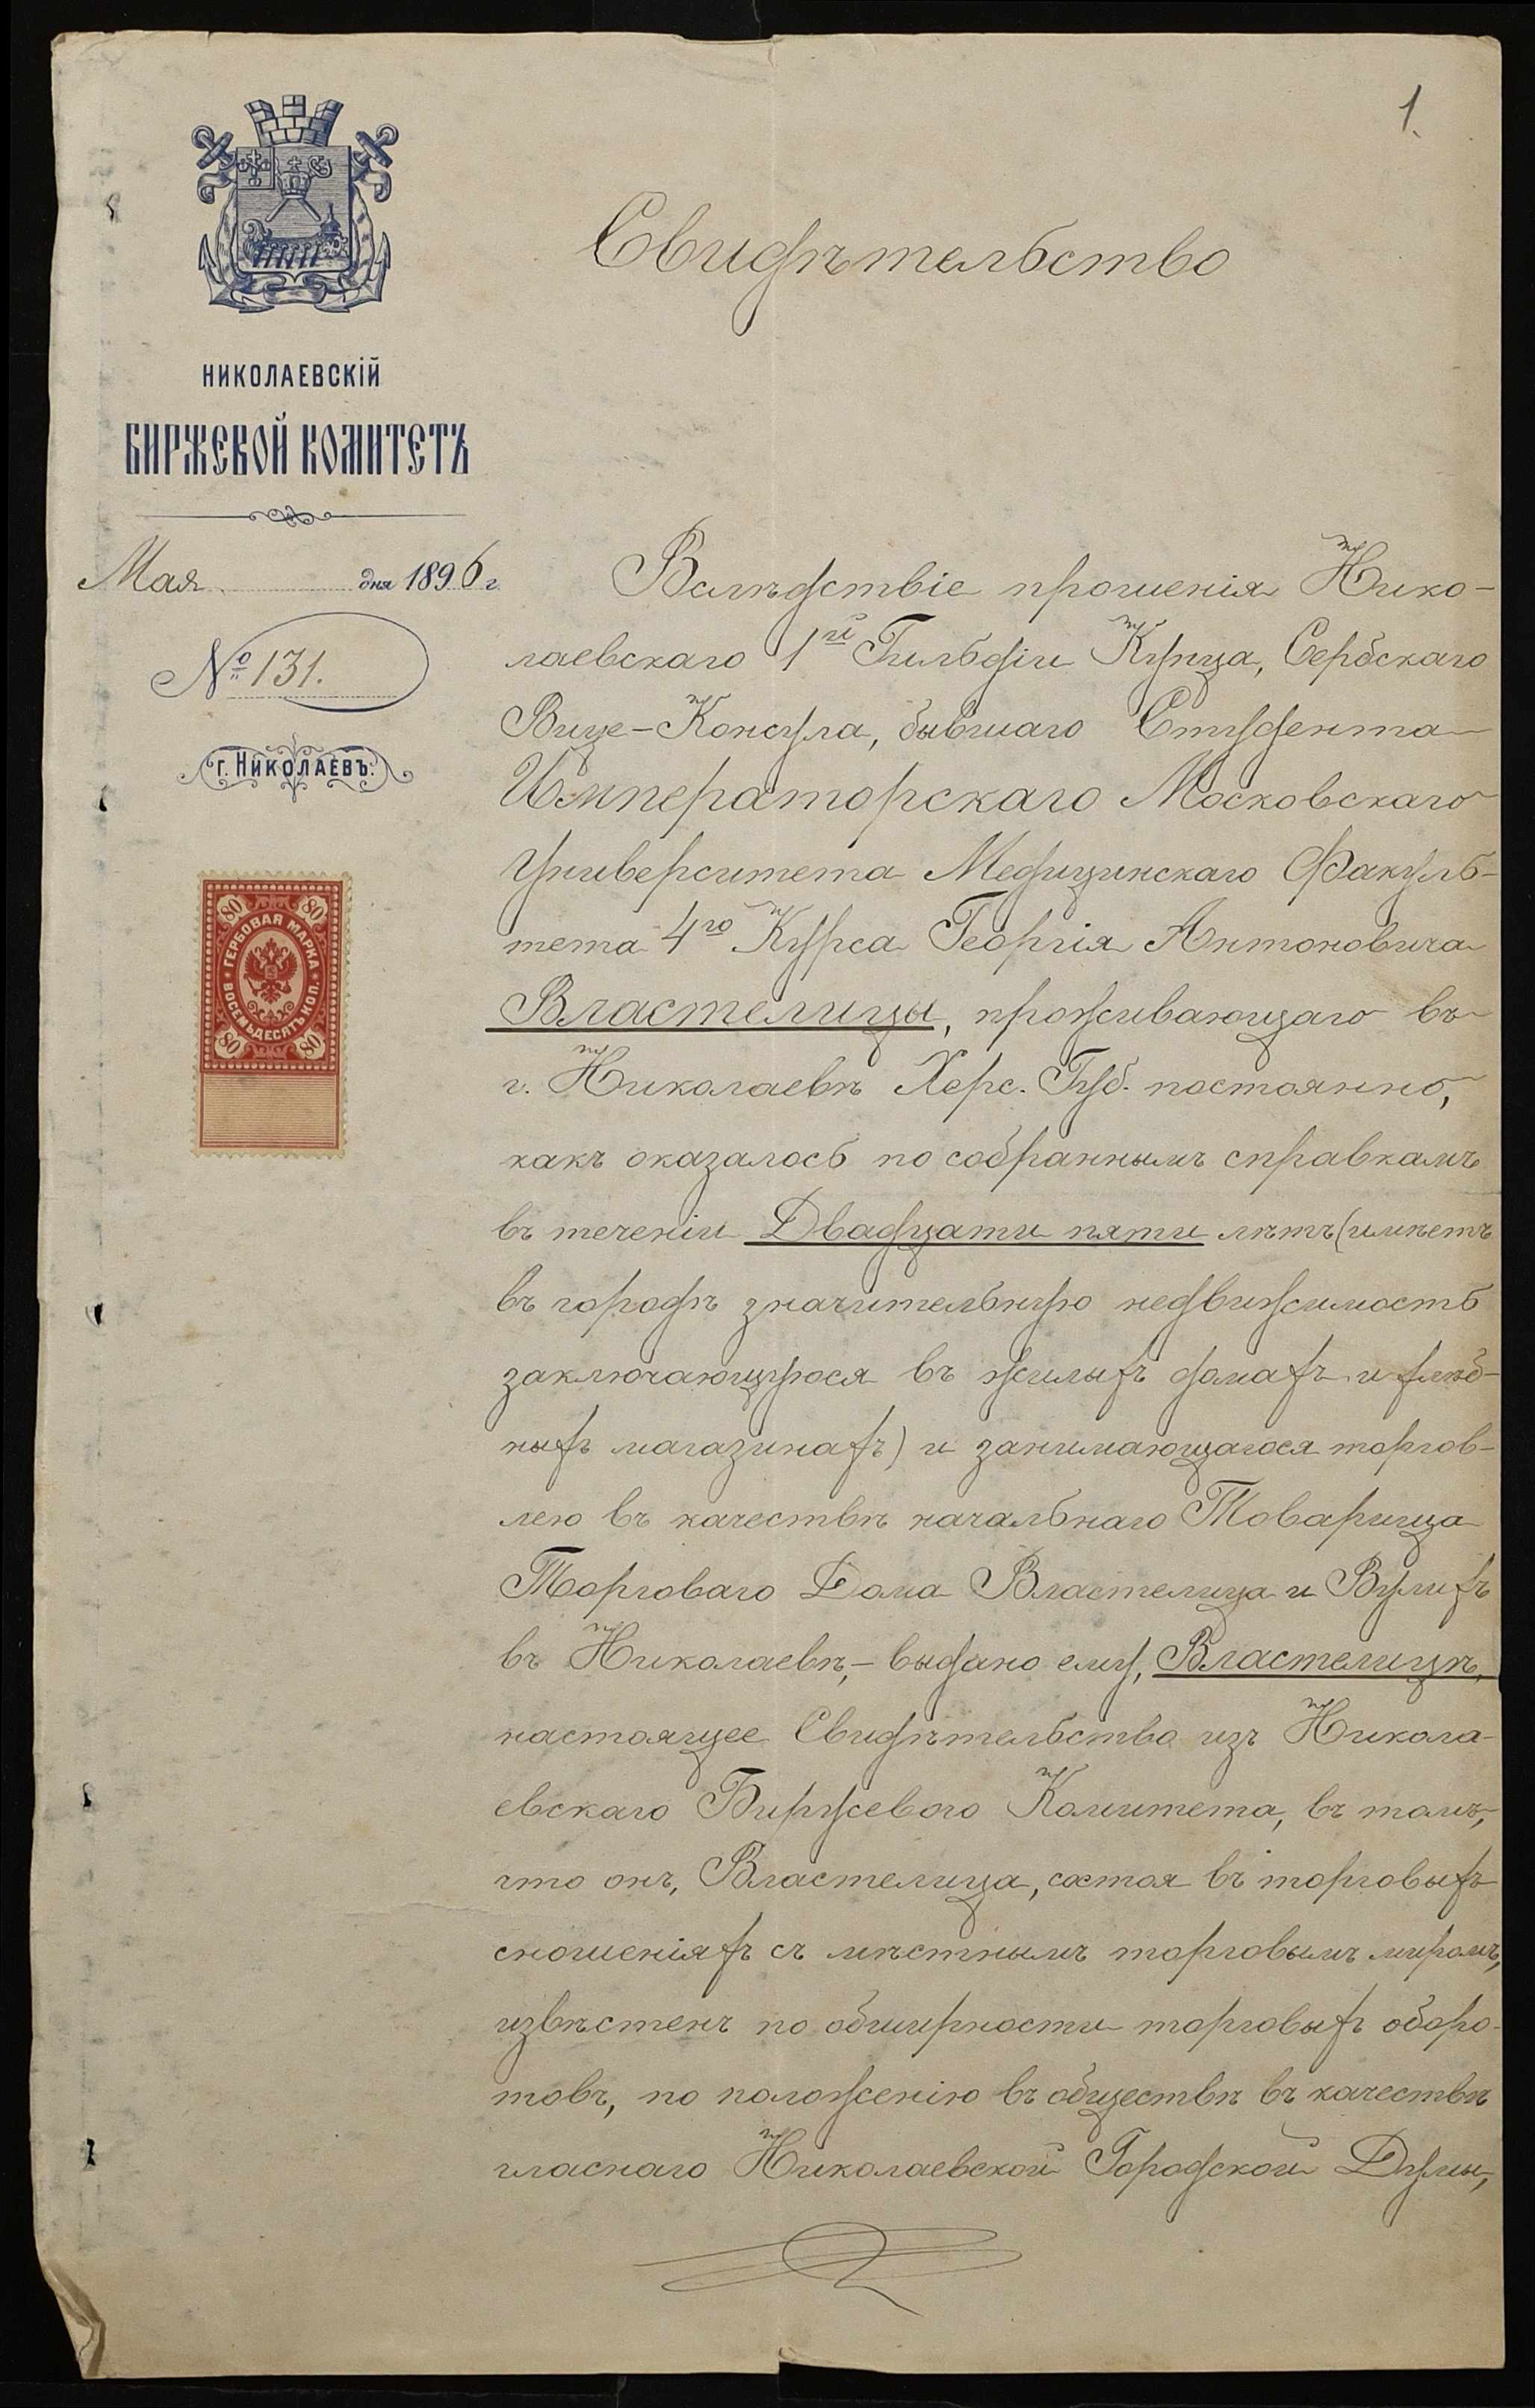 1.
Свидѣтельство
НИКОЛАЕВСКІЙ
БИРЖЕВОЙ КОМИТЕТЪ
Мая дня 1896 г.
№ 131.
г. НИКОЛАЕВЪ.
80 80
ГЕРБОВАЯ МАРКА
ВОСЕМЬДЕСЯТЪ КОП.
80 80
Вслѣдствіе прошенія Нико-
лаевскаго 1й Гильдіи Купца, Сербскаго
Вице-Консула, бывшаго Студента
Императорскаго Московскаго
Университета Медицинскаго Факуль-
тета 4го Курса Георгія Антоновича
Властелицы, проживающаго въ
г. Николаевѣ Херс. Губ. постоянно,
какъ оказалось по собраннымъ справкамъ
въ теченіи Двадцати пяти лѣтъ (имѣетъ
въ городѣ значительную недвижимость
заключающуюся въ жилыхъ домахъ и хлѣб-
ныхъ магазинахъ) и занимающагося торгов-
лею въ качествѣ начальнаго Товарища
Торговаго Дома Властелица и Вулихъ
въ Николаевѣ,- выдано ему, Властелицѣ,
настоящее Свидѣтельство изъ Никола-
евскаго Биржевого Комитета, въ томъ,
что онъ, Властелица, состоя въ торговыхъ
сношеніяхъ съ мѣстнымъ торговымъ миромъ,
извѣстенъ по обширности торговыхъ оборо-
товъ, по положенію въ обществѣ въ качествѣ
гласнаго Николаевской Городской Думы,